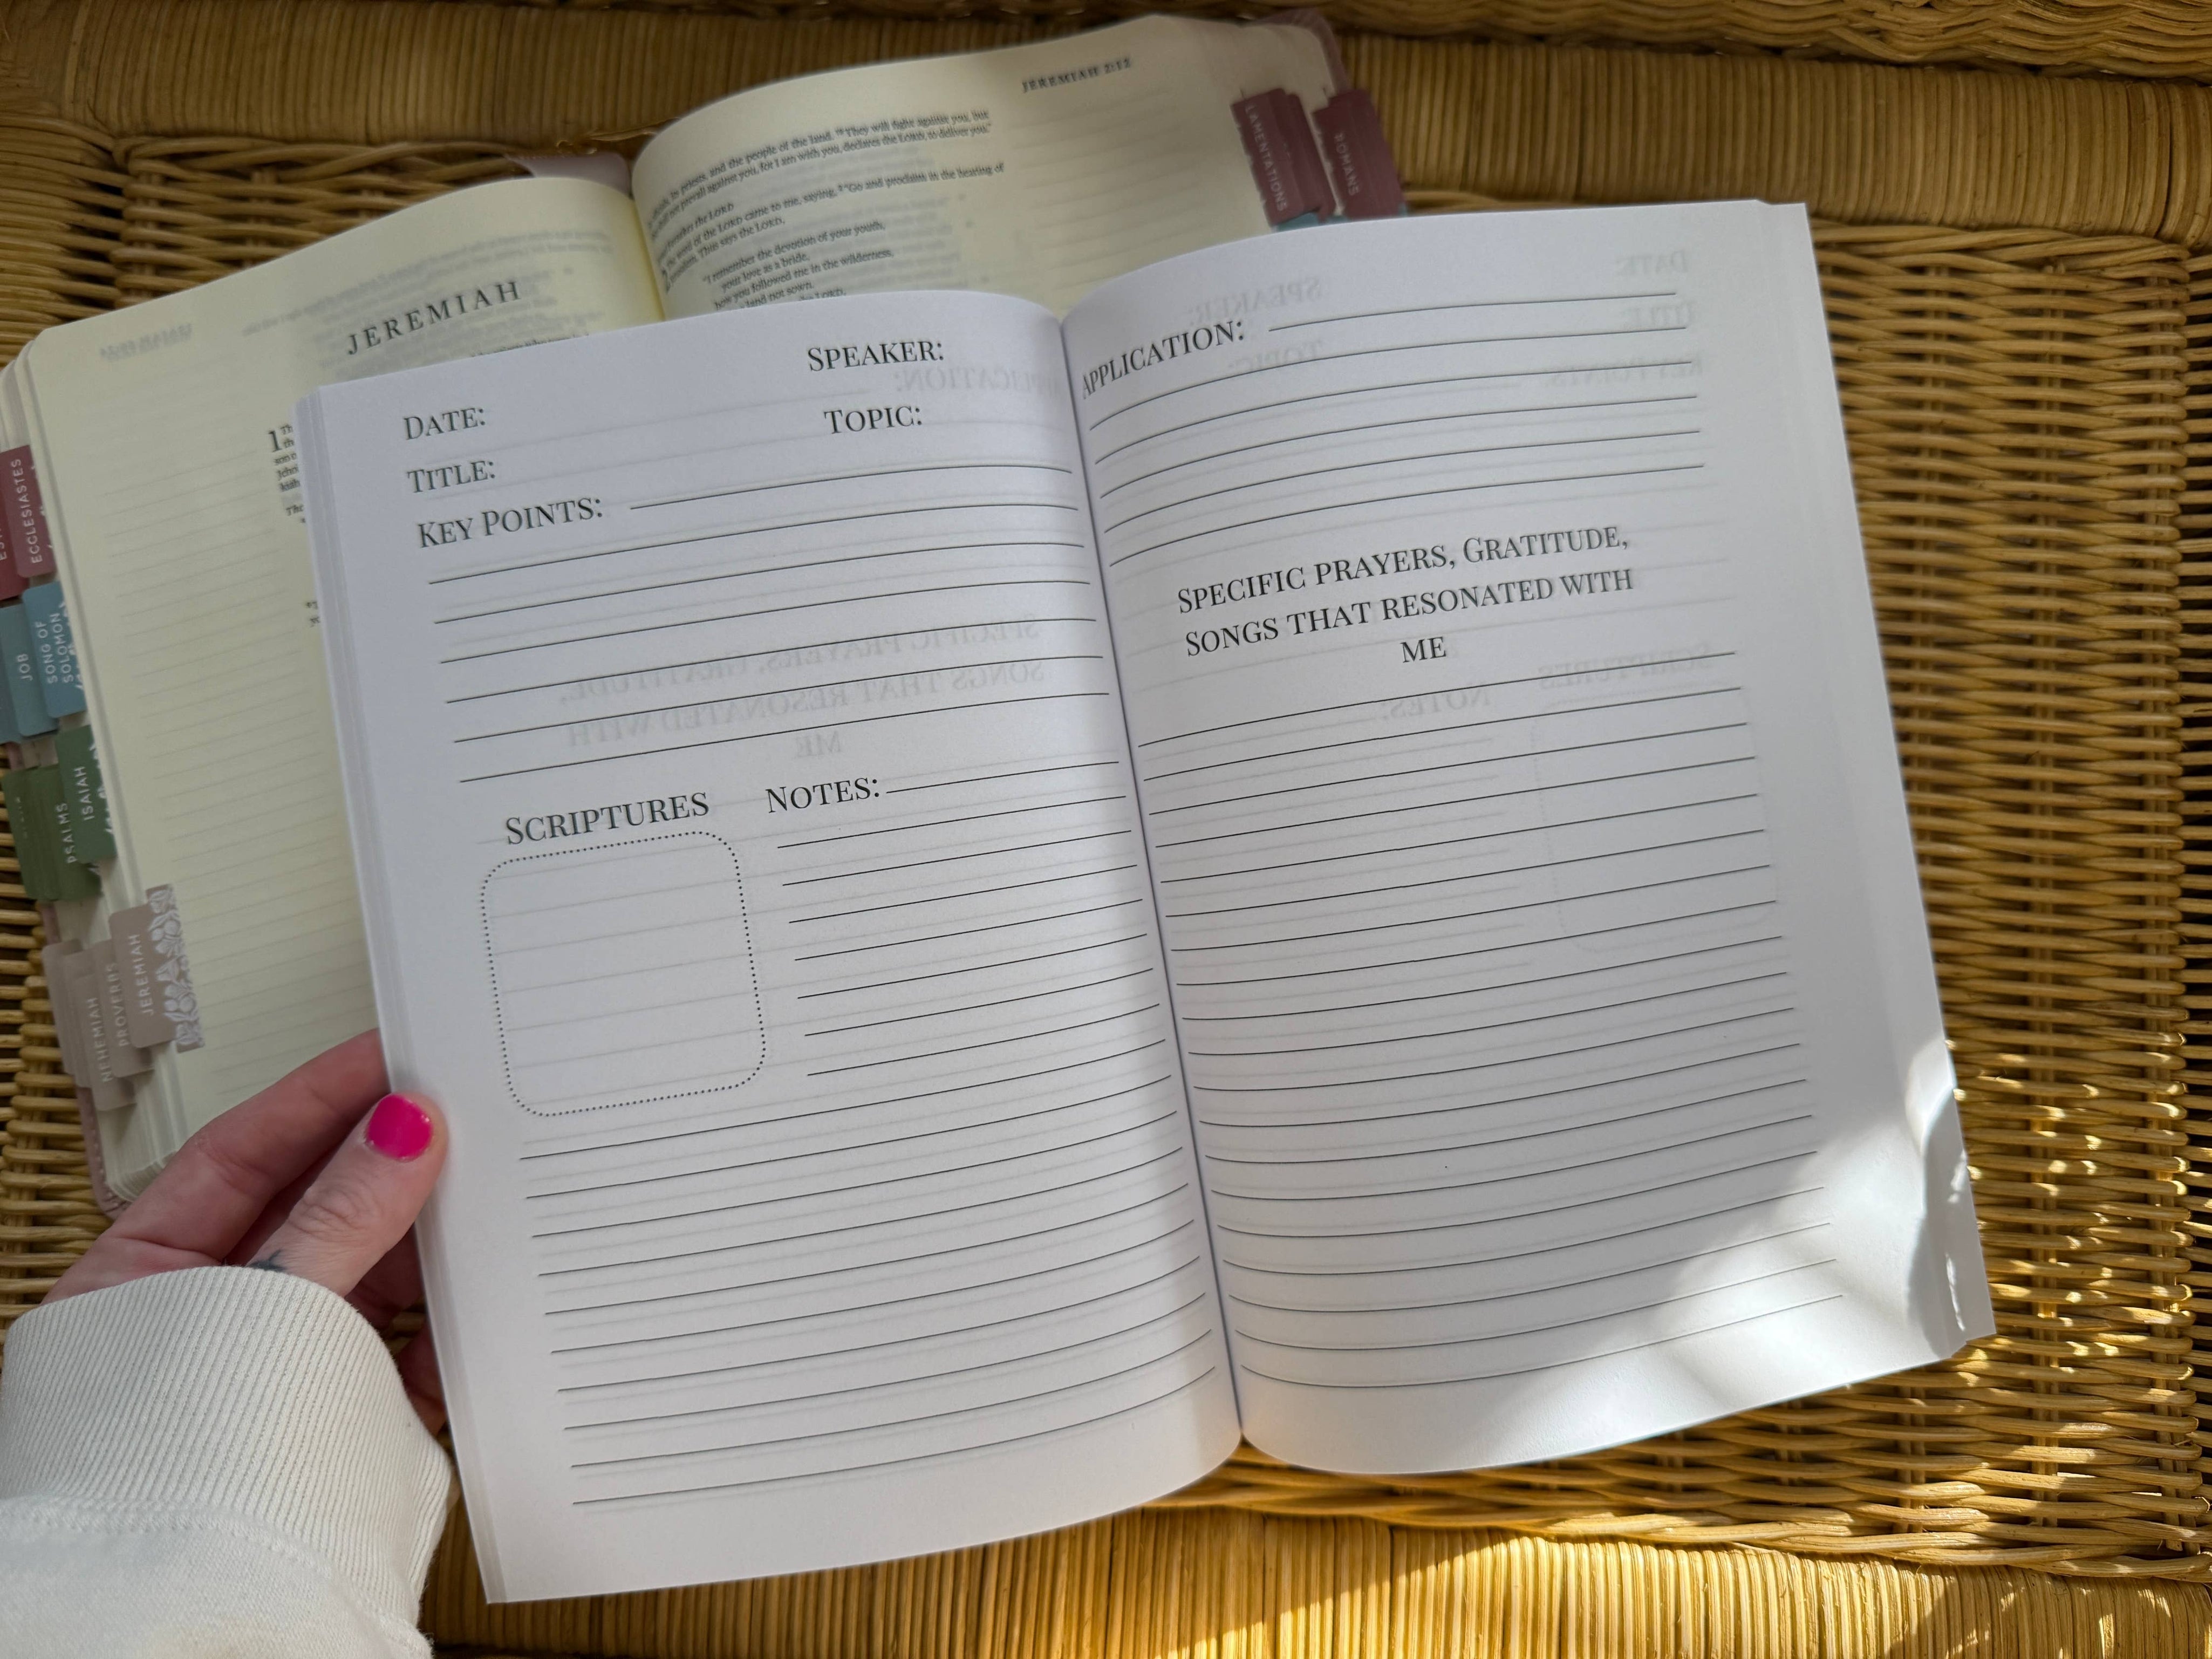 JEREMIAH 2:12
priests, and the people of the land. 19 They will fight against you, but
not prevail against you, for I am with you, declares the LORD, to deliver you."
the LORD
the word of the LORD came to me, saying, 2 "Go and proclaim in the hearing of
Thus says the LORD,
"I remember the devotion of your youth,
your love as a bride,
how you followed me in the wilderness,
land not sown.
the LORD,
LAMENTATIONS
ROMANS
JEREMIAH
1
ECCLESIASTES
JOB
SONG OF
SOLOMON
PSALMS
ISAIAH
NEHEMIAH
PROVERBS
JEREMIAH
DATE:
SPEAKER:
TITLE:
TOPIC:
KEY POINTS:
SCRIPTURES
NOTES:
APPLICATION:
SPECIFIC PRAYERS, GRATITUDE,
SONGS THAT RESONATED WITH
ME